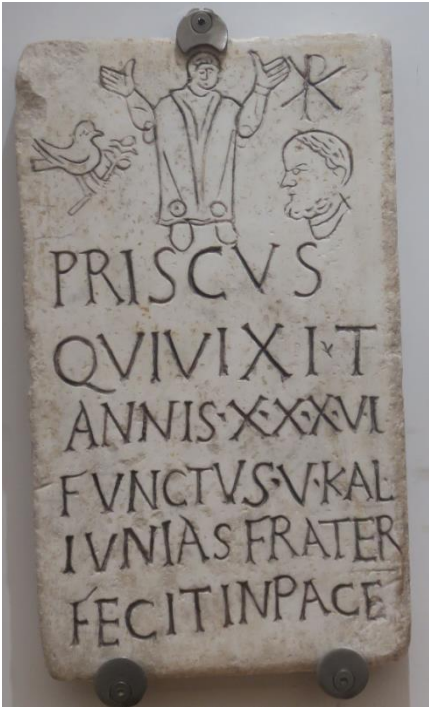 PRISCVS
QVIVIXI·T
ANNIS·X·X·X·VI
FVNCTVS·V·KAL
IVNIAS FRATER
FECIT IN PACE